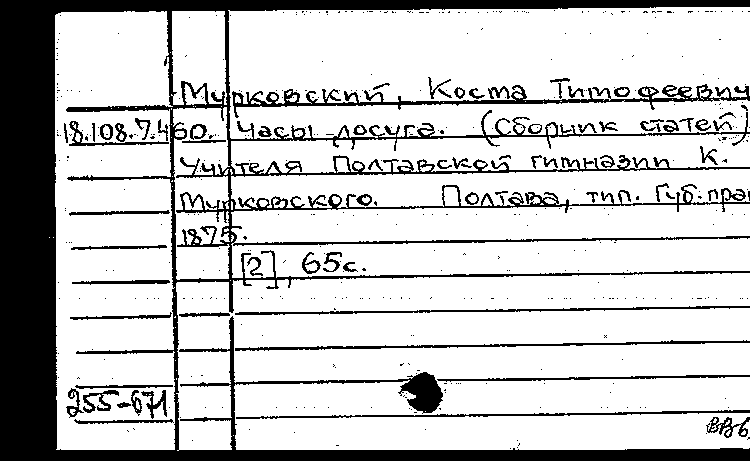 Мурковский, Коста Тимофеевич
18.108.7.460. Часы досуга. (Сборник статей)
Учителя Полтавской гимназии К.
Мурковского. Полтава, тип. Губ. прав
1875.
[2], 65с.
255-671